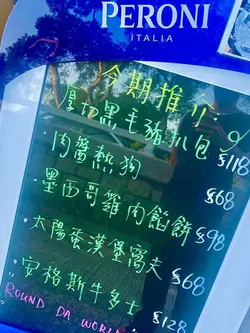 PERONI
ITALIA
今期推介:
厚切黑毛豬扒包 $118
·肉醬熱狗 $68
·墨西哥雞肉餡餅 $98
·太陽蛋漢堡窩夫 $68
·安格斯牛多士 $128
ROUND DA WORLD